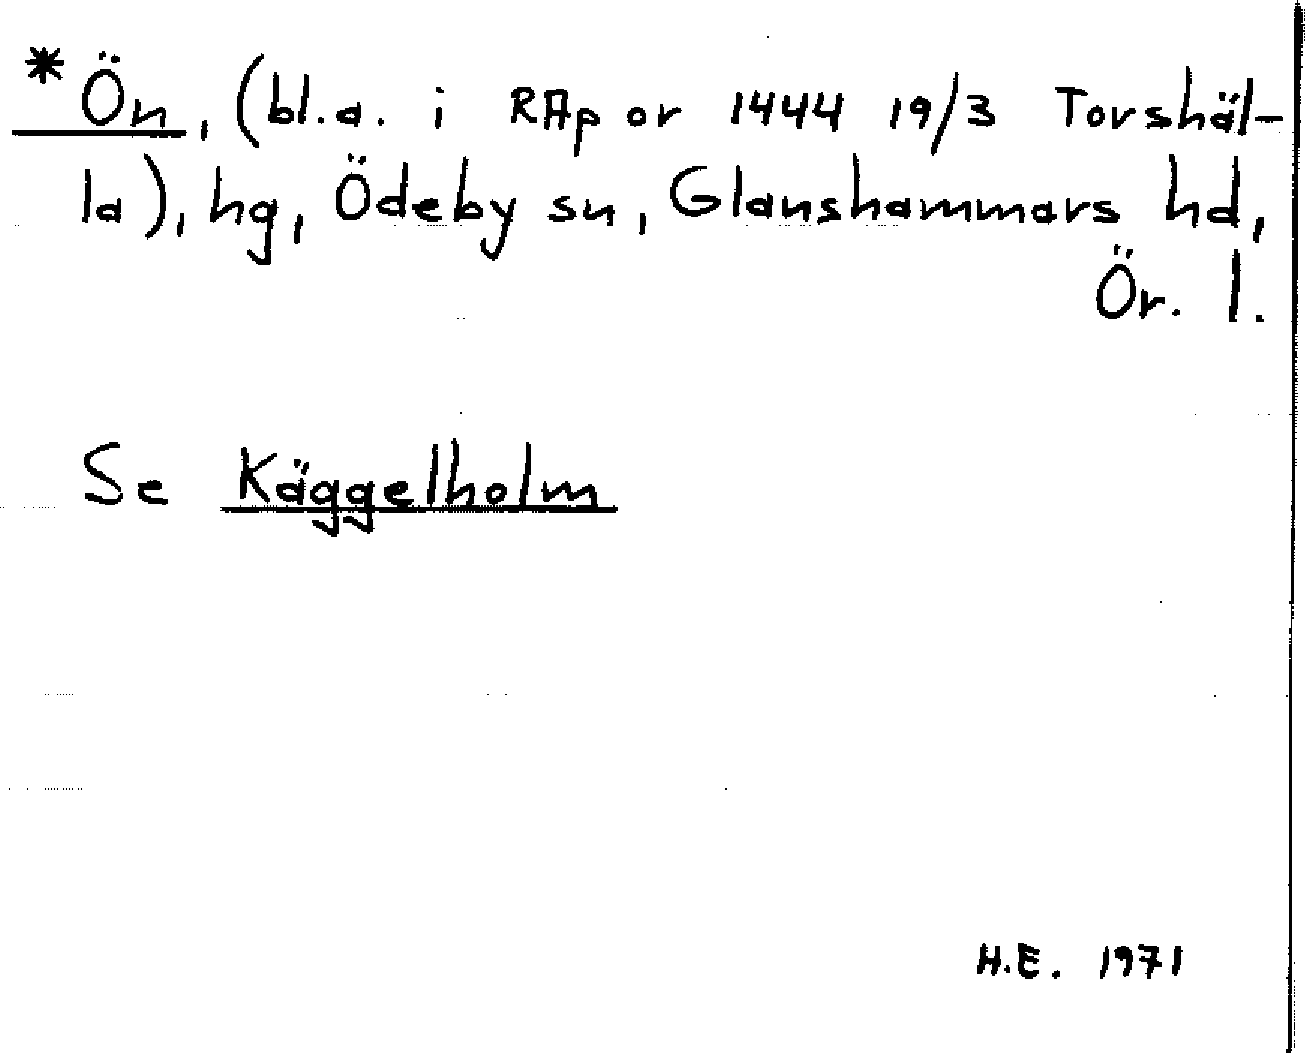 *Ön, (bl.a. i RAp or 1444 19/3 Torshäl-
la), hg, Ödeby sn, Glanshammars hd,
Ör. l.
Se Käggelholm
H.E. 1971